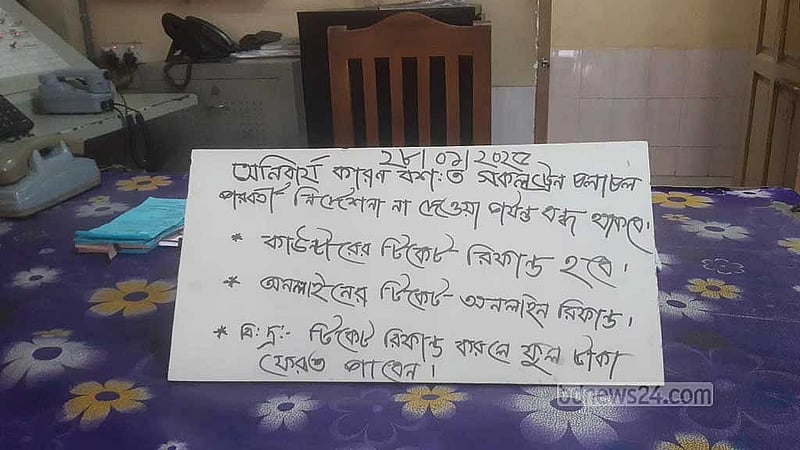 ২৮/০১/২০২৫
অনিবার্য কারন বশ:ত সকল ট্রেন চলাচল
পরবর্তী নির্দেশনা না দেওয়া পর্যন্ত বন্ধ থাকবে।
* কাউন্টারের টিকেট রিফান্ড হবে।
* অনলাইনের টিকেট- অনলাইন রিফান্ড।
* বি: দ্র:- টিকেট রিফান্ড করলে ফুল টাকা
ফেরত পাবেন।
bdnews24.com